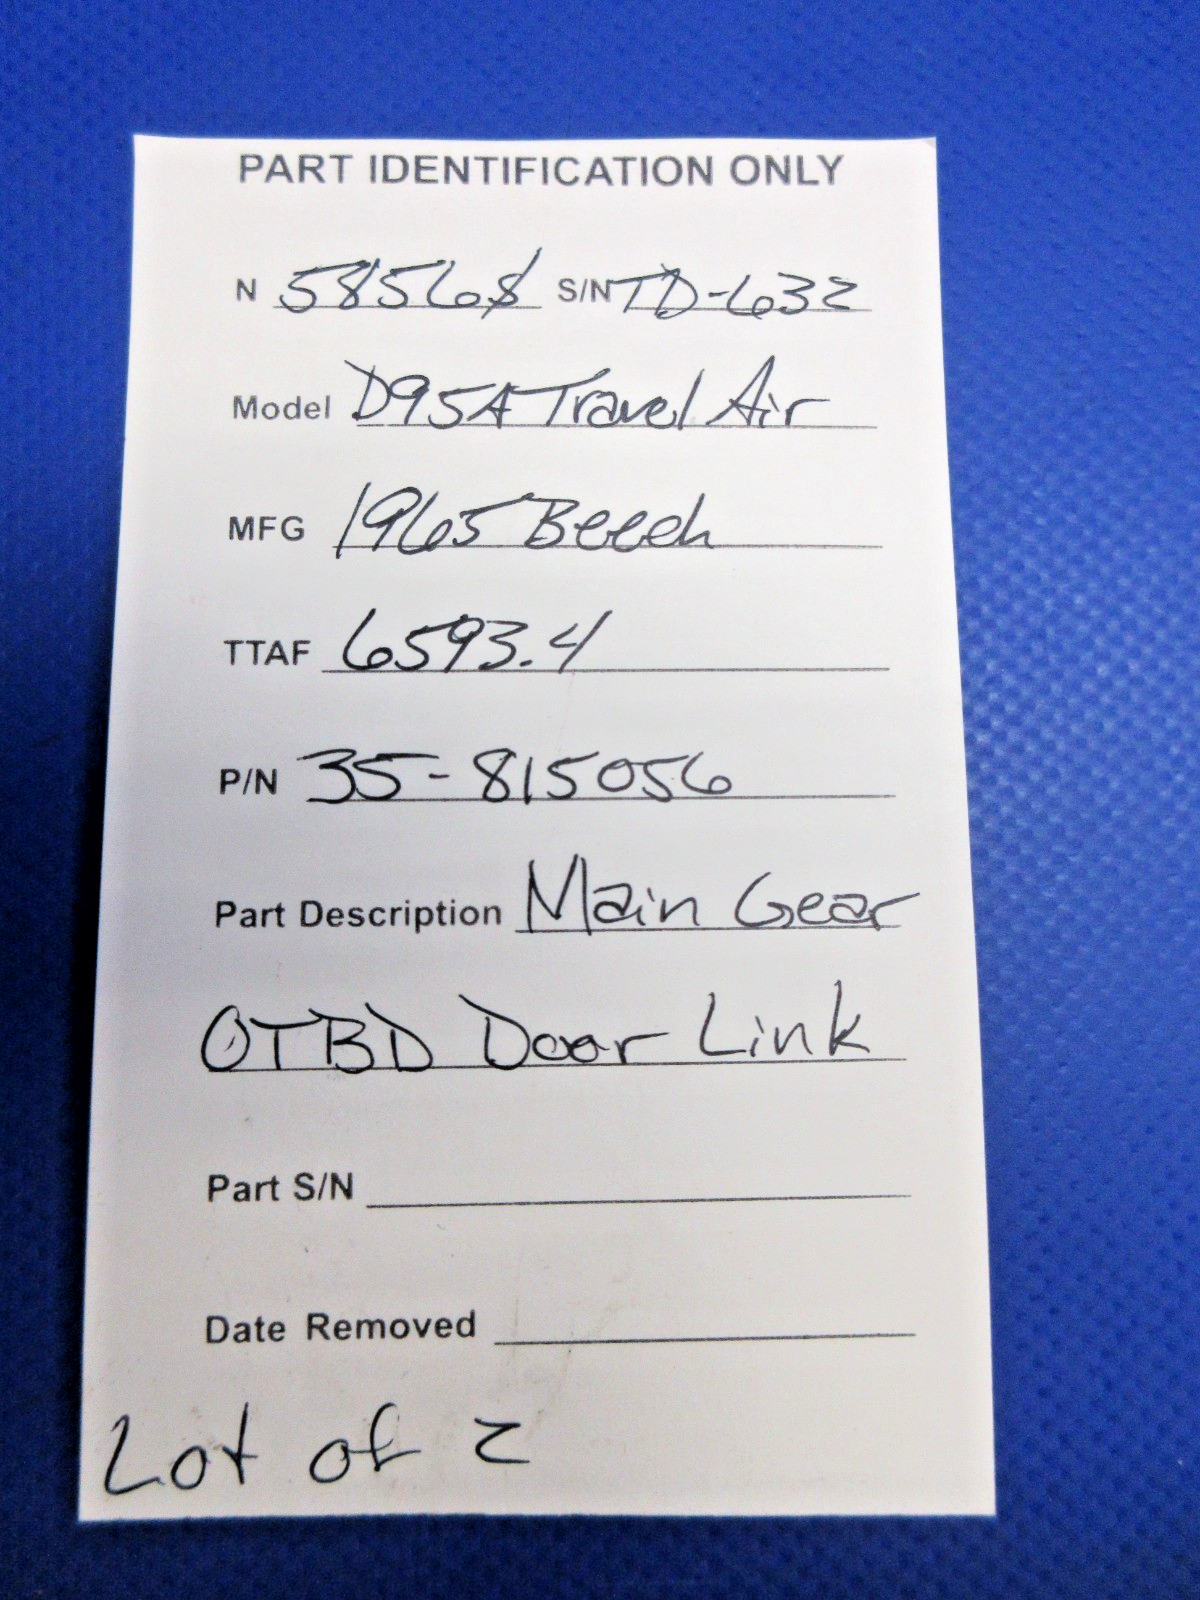 PART IDENTIFICATION ONLY
N 5856S S/N TD-632
Model D95A Travel Air
MFG 1965 Beech
TTAF 6593.4
P/N 35-815056
Part Description Main Gear
OTBD Door Link
Part S/N
Date Removed
Lot of 2